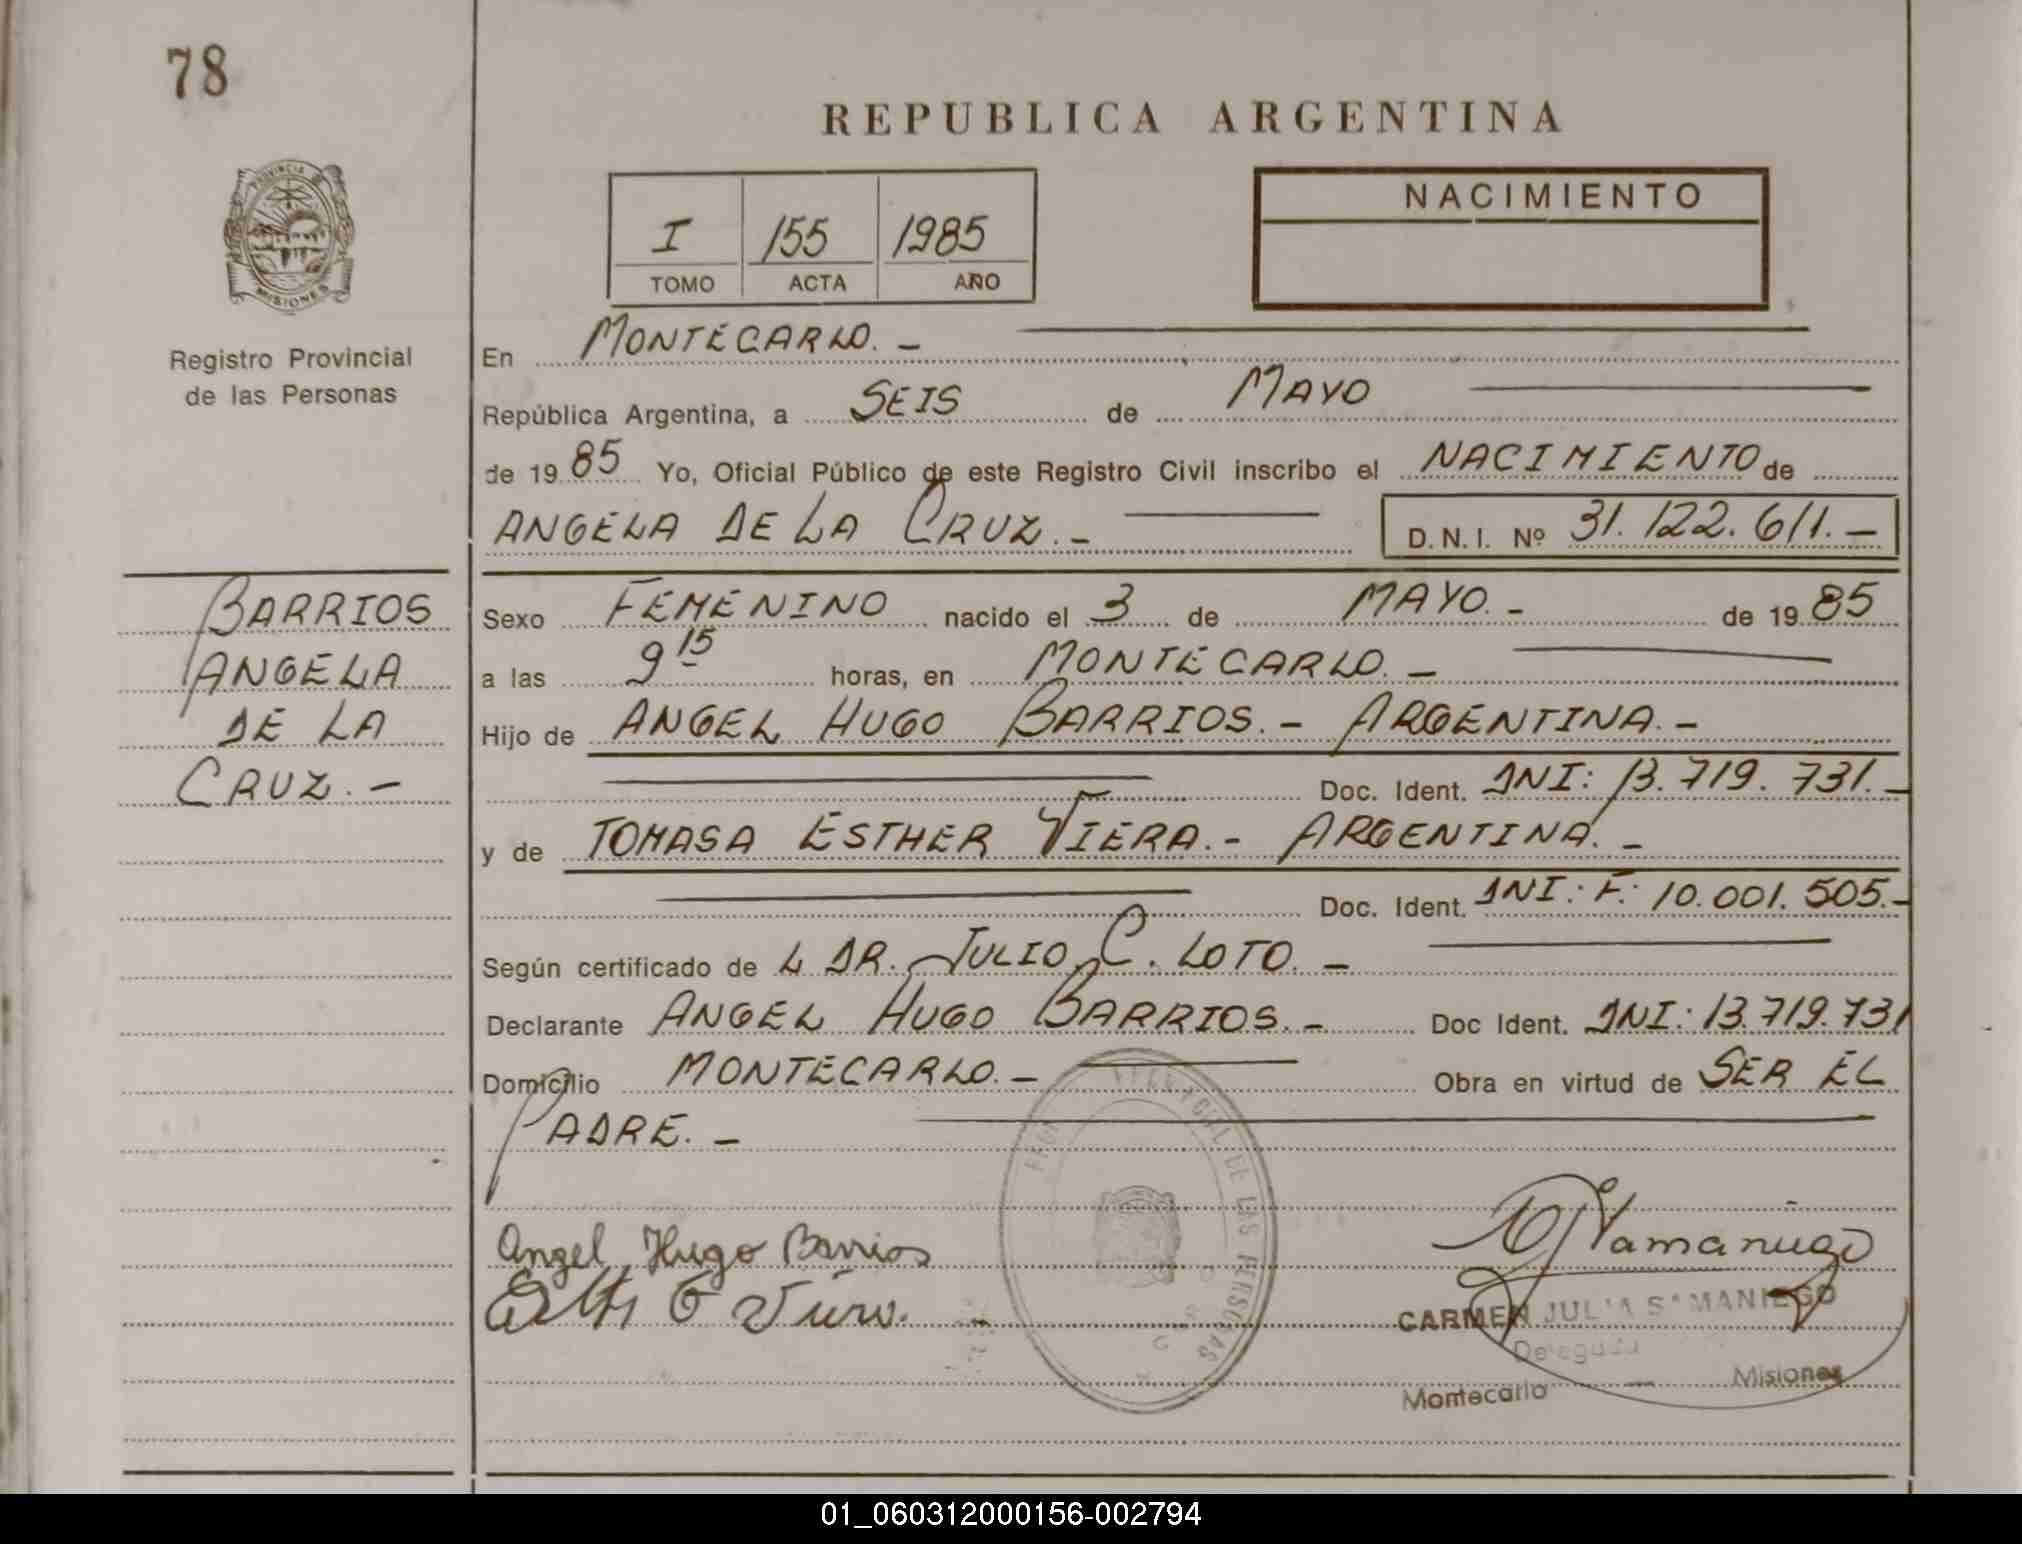 78
REPUBLICA ARGENTINA
PROVINCIA DE
MISIONES
Registro Provincial
de las Personas
I 155 1985
TOMO ACTA AÑO
NACIMIENTO
En MONTECARLO. —
República Argentina, a SEIS de MAYO
de 1985 Yo, Oficial Público de este Registro Civil inscribo el NACIMIENTO de
ANGELA DE LA CRUZ. — D.N.I. Nº 31.122.611. —
BARRIOS
ANGELA
DE LA
CRUZ. —
Sexo FEMENINO nacido el 3 de MAYO. — de 1985
a las 9 15 horas, en MONTECARLO. —
Hijo de ANGEL HUGO BARRIOS. — ARGENTINA. —
Doc. Ident. DNI: 13.719.731. —
y de TOMASA ESTHER VIERA. — ARGENTINA. —
Doc. Ident. DNI: F: 10.001.505. —
Según certificado de L DR. JULIO C. LOTO. —
Declarante ANGEL HUGO BARRIOS. — Doc Ident. DNI: 13.719.731
Domicilio MONTECARLO. — Obra en virtud de SER EL
PADRE. —
DE LAS PERSONAS
Angel Hugo Barrios
CARMEN JULIA SAMANIEGO
Delegada
Montecarlo — Misiones
01_060312000156-002794